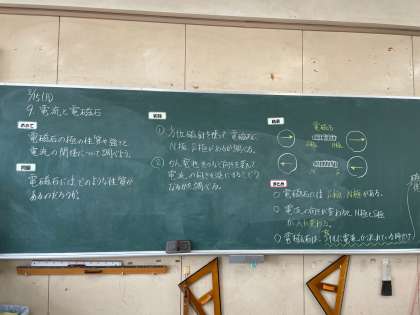 2/15(月)
9. 電流と電磁石
めあて
電磁石の極の性質や強さと
電流の関係について調べよう。
問題
電磁石にはどのような性質が
あるのだろうか。
実験
① 方位磁針を使って電磁石に
N極、S極があるか調べる。
② かん電池をつなぐ向きを変えて
電流の向きを逆にするとどう
なるかを調べる。
結果
電磁石
N S
まとめ
○ 電磁石には S極、N極がある。
○ 電流の向きが変わると N極とS極
が入れ変わる。
○ 電磁石は、電流が流れている時だけ